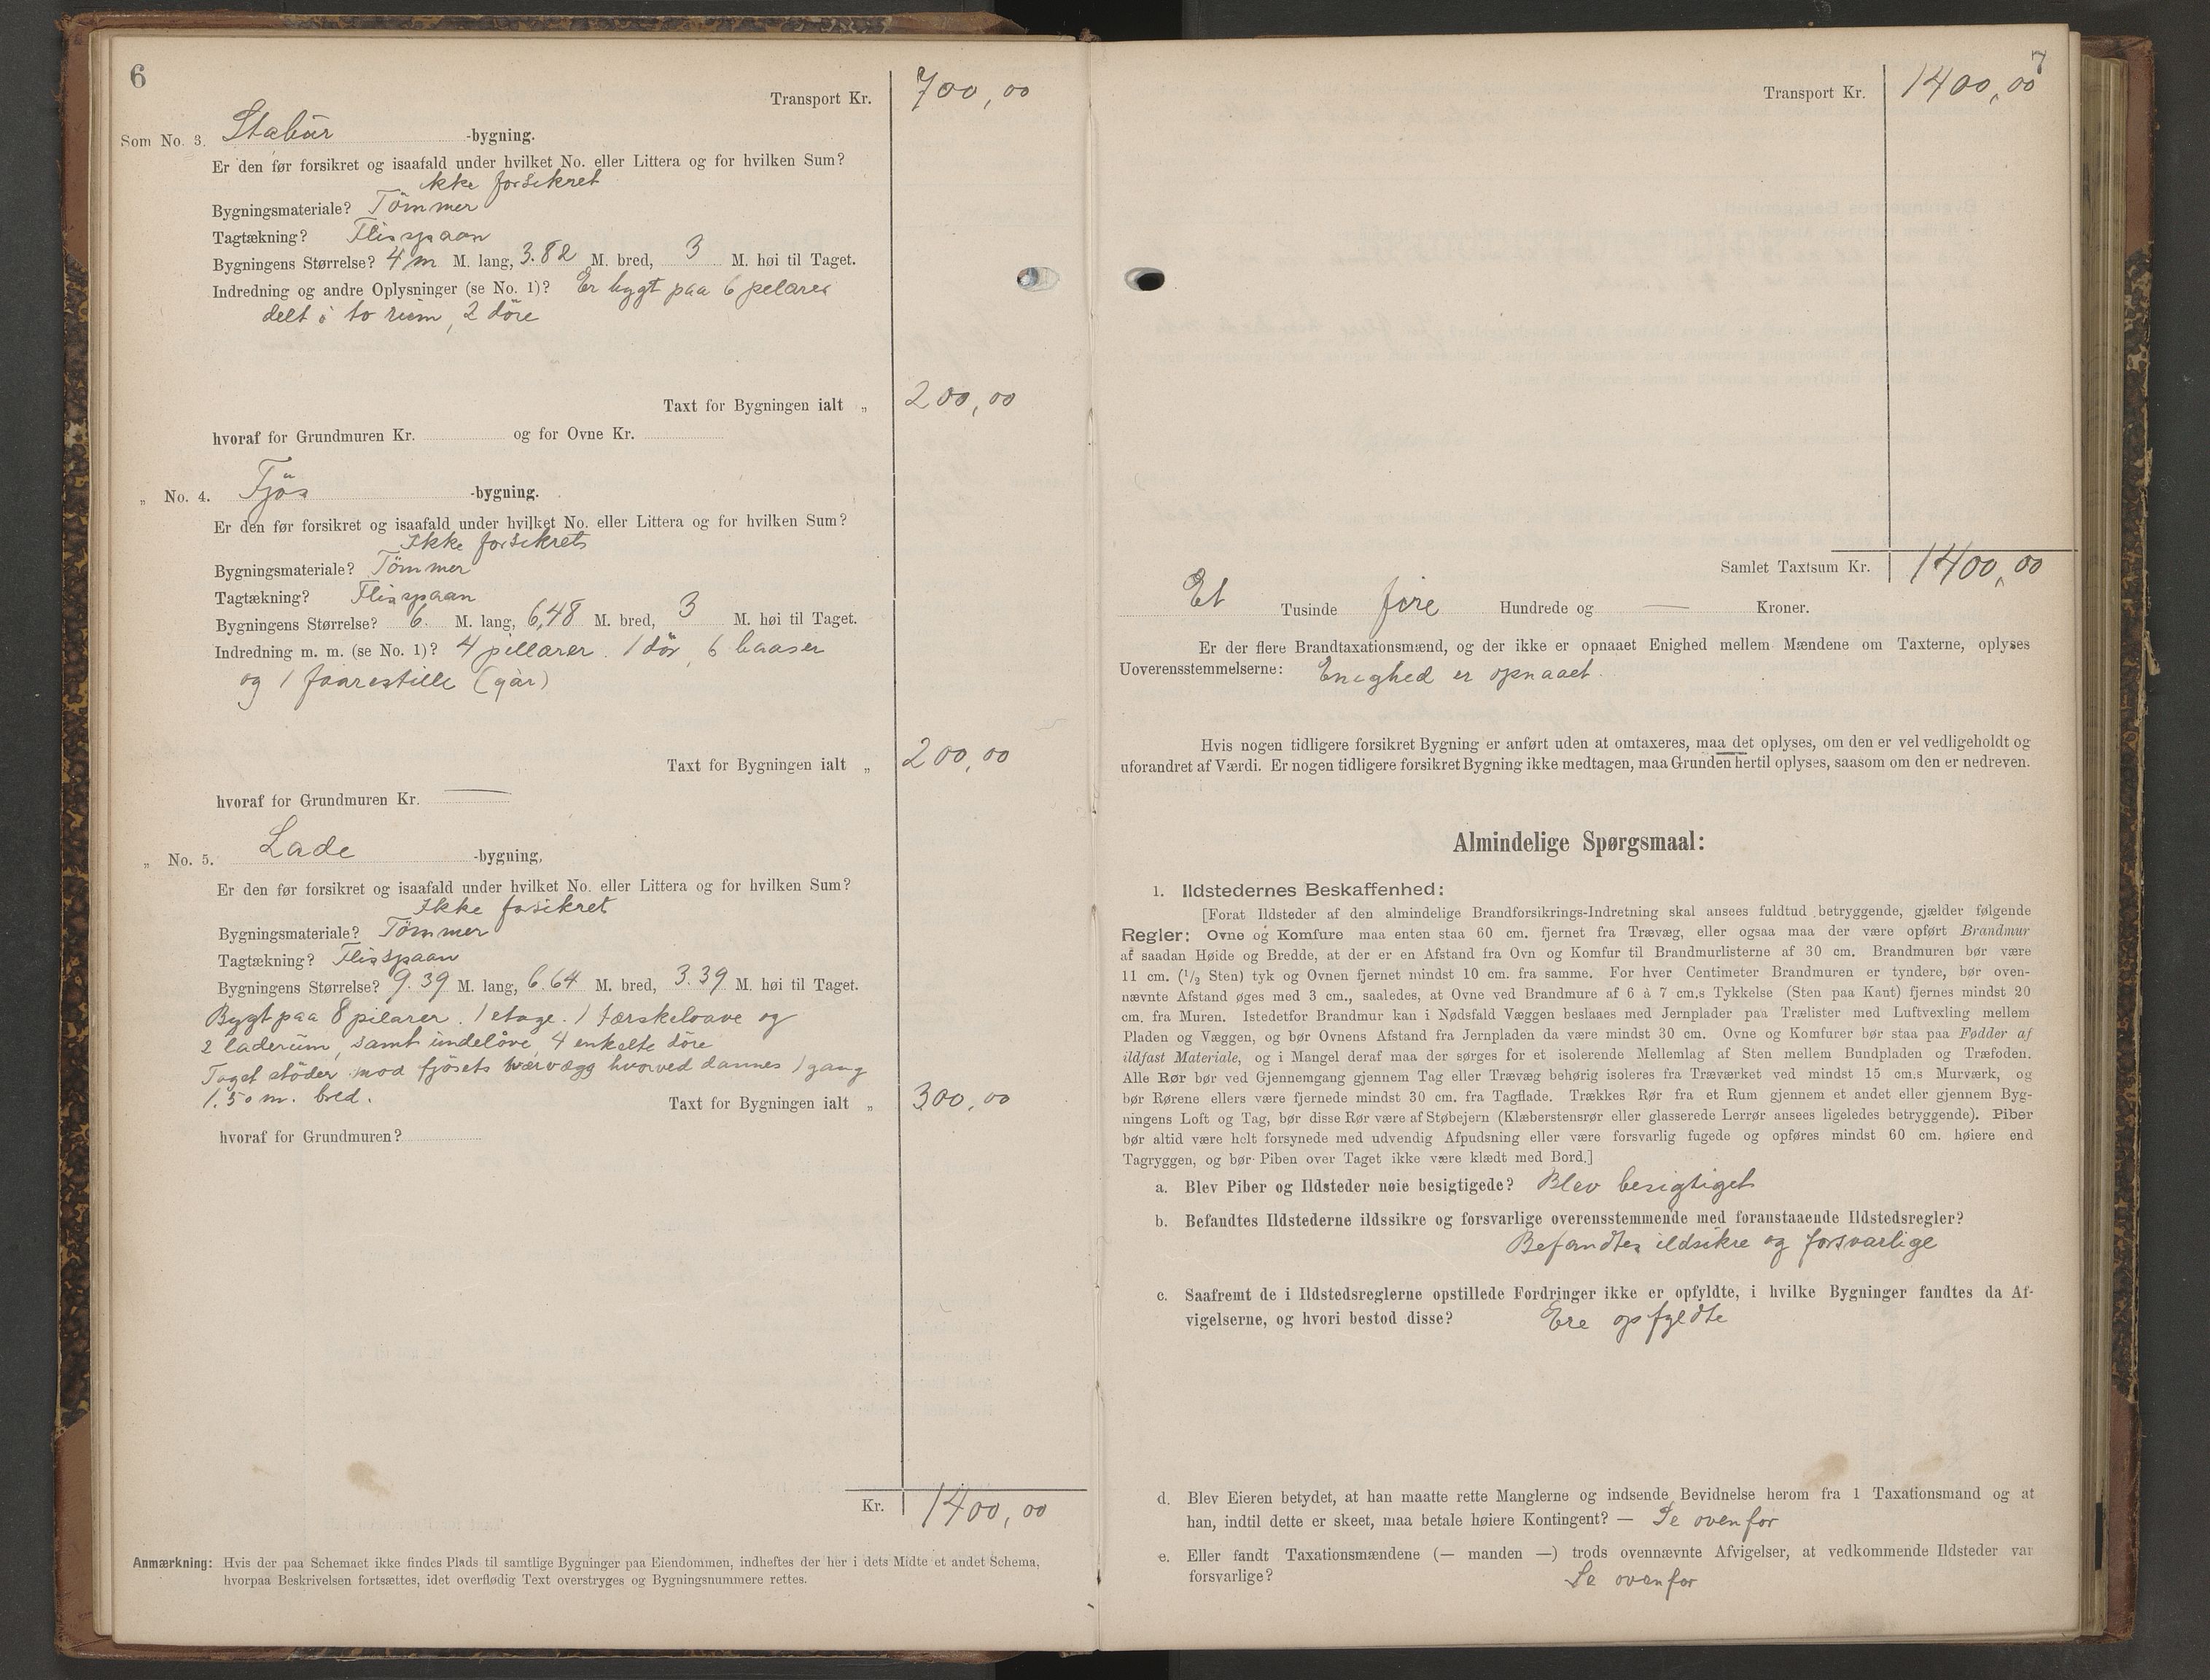 6
Transport Kr. 700,00
Som No. 3. Stabur -bygning.
Er den før forsikret og isaafald under hvilket No. eller Littera og for hvilken Sum?
ikke forsikret
Bygningsmateriale? Tömmer
Tagtækning? Flisspaan
Bygningens Størrelse? 4 m M. lang, 3.82 M. bred, 3 M. høi til Taget.
Indredning og andre Oplysninger (se No. 1)? Er bygt paa 6 pelarer
delt i to rum, 2 döre
Taxt for Bygningen ialt „ 200,00
hvoraf for Grundmuren Kr. og for Ovne Kr.
„ No. 4. Fjös -bygning.
Er den før forsikret og isaafald under hvilket No. eller Littera og for hvilken Sum?
Ikke forsikrets
Bygningsmateriale? Tömmer
Tagtækning? Flisspaan
Bygningens Størrelse? 6. M. lang, 6,48 M. bred, 3 M. høi til Taget.
Indredning m. m. (se No. 1)? 4 pillarer. 1 dör, 6 baaser
og 1 faarestille (går)
Taxt for Bygningen ialt „ 200,00
hvoraf for Grundmuren Kr. —
„ No. 5. Lade -bygning,
Er den før forsikret og isaafald under hvilket No. eller Littera og for hvilken Sum?
Ikke fosikret
Bygningsmateriale? Tömmer
Tagtækning? Flisspaan
Bygningens Størrelse? 9.39 M. lang, 6.64 M. bred, 3.39 M. høi til Taget.
Bygt paa 8 pilarer. 1 etage. 1 tærskeloave og
2 laderum, samt undelöve, 4 enkelte döre
Taget stöder mod fjösets tværvægg hvorved dannes 1 gang
1,50 m. bred.
Taxt for Bygningen ialt „ 300,00
hvoraf for Grundmuren?
Kr. 1400,00
Anmærkning: Hvis der paa Schemaet ikke findes Plads til samtlige Bygninger paa Eiendommen, indheftes der her i dets Midte et andet Schema,
hvorpaa Beskrivelsen fortsættes, idet overflødig Text overstryges og Bygningsnummere rettes.
7
Transport Kr. 1400,00
Samlet Taxtsum Kr. 1400,00
Et Tusinde fire Hundrede og — Kroner.
Er der flere Brandtaxationsmænd, og der ikke er opnaaet Enighed mellem Mændene om Taxterne, oplyses
Uoverensstemmelserne: Enighed er opnaaet.
Hvis nogen tidligere forsikret Bygning er anført uden at omtaxeres, maa det oplyses, om den er vel vedligeholdt og
uforandret af Værdi. Er nogen tidligere forsikret Bygning ikke medtagen, maa Grunden hertil oplyses, saasom om den er nedreven.
Almindelige Spørgsmaal:
1. Ildstedernes Beskaffenhed:
[Forat Ildsteder af den almindelige Brandforsikrings-Indretning skal ansees fuldtud betryggende, gjælder følgende
Regler: Ovne og Komfure maa enten staa 60 cm. fjernet fra Trævæg, eller ogsaa maa der være opført Brandmur
af saadan Høide og Bredde, at der er en Afstand fra Ovn og Komfur til Brandmurlisterne af 30 cm. Brandmuren bør være
11 cm. (1/2 Sten) tyk og Ovnen fjernet mindst 10 cm. fra samme. For hver Centimeter Brandmuren er tyndere, bør oven-
nævnte Afstand øges med 3 cm., saaledes, at Ovne ved Brandmure af 6 à 7 cm.s Tykkelse (Sten paa Kant) fjernes mindst 20
cm. fra Muren. Istedetfor Brandmur kan i Nødsfald Væggen beslaaes med Jernplader paa Trælister med Luftvexling mellem
Pladen og Væggen, og bør Ovnens Afstand fra Jernpladen da være mindst 30 cm. Ovne og Komfurer bør staa paa Fødder af
ildfast Materiale, og i Mangel deraf maa der sørges for et isolerende Mellemlag af Sten mellem Bundpladen og Træfoden.
Alle Rør bør ved Gjennemgang gjennem Tag eller Trævæg behørig isoleres fra Træværket ved mindst 15 cm.s Murværk, og
bør Rørene ellers være fjernede mindst 30 cm. fra Tagflade. Trækkes Rør fra et Rum gjennem et andet eller gjennem Byg-
ningens Loft og Tag, bør disse Rør være af Støbejern (Klæberstensrør eller glasserede Lerrør ansees ligeledes betryggende). Piber
bør altid være helt forsynede med udvendig Afpudsning eller være forsvarlig fugede og opføres mindst 60 cm. høiere end
Tagryggen, og bør Piben over Taget ikke være klædt med Bord.]
a. Blev Piber og Ildsteder nøie besigtigede? Blev besigtiget
b. Befandtes Ildstederne ildssikre og forsvarlige overensstemmende med foranstaaende Ildstedsregler?
Befandtes ildsikre og forsvarlige
c. Saafremt de i Ildstedsreglerne opstillede Fordringer ikke er opfyldte, i hvilke Bygninger fandtes da Af-
vigelserne, og hvori bestod disse? Ere opfyldte
d. Blev Eieren betydet, at han maatte rette Manglerne og indsende Bevidnelse herom fra 1 Taxationsmand og at
han, indtil dette er skeet, maa betale høiere Kontingent? — Se ovenfor
e. Eller fandt Taxationsmændene (— manden —) trods ovennævnte Afvigelser, at vedkommende Ildsteder var
forsvarlige? Se ovenfor